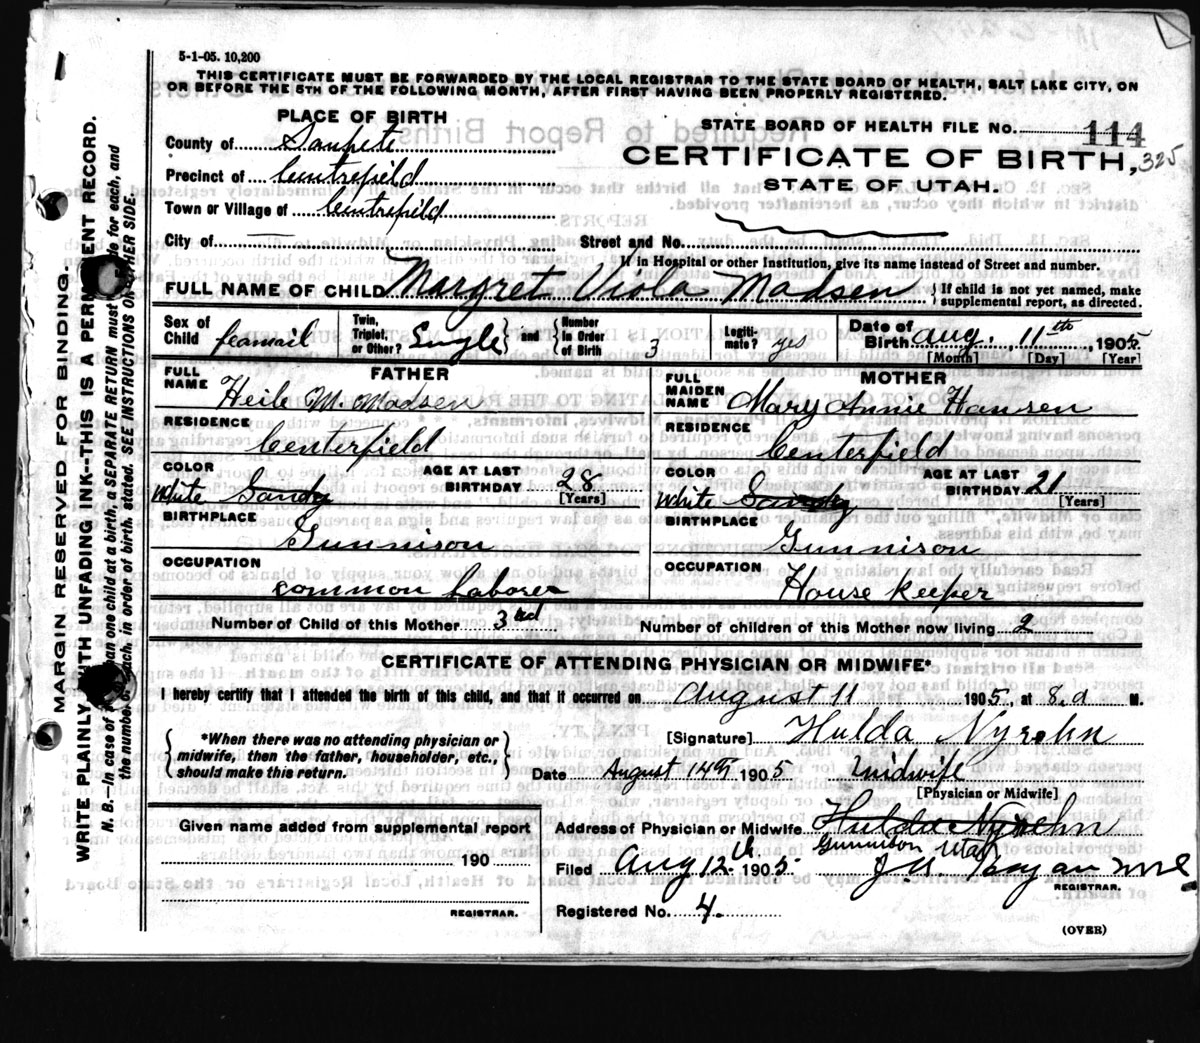 5-1-05. 10,200
THIS CERTIFICATE MUST BE FORWARDED BY THE LOCAL REGISTRAR TO THE STATE BOARD OF HEALTH, SALT LAKE CITY, ON
OR BEFORE THE 5TH OF THE FOLLOWING MONTH, AFTER FIRST HAVING BEEN PROPERLY REGISTERED.
PLACE OF BIRTH
County of Sanpete
Precinct of Centrefield
Town or Village of Centrefield
City of
STATE BOARD OF HEALTH FILE NO. 114
CERTIFICATE OF BIRTH, 325
STATE OF UTAH.
Street and No.
If in Hospital or other Institution, give its name instead of Street and number.
FULL NAME OF CHILD Margret Viola Madsen { If child is not yet named, make supplemental report, as directed.
Sex of Child feamail Twin, Triplet, or Other? Single and Number in Order of Birth 3 Legitimate? yes Date of Birth Aug. 11th, 1905.
[Month] [Day] [Year]
FATHER
FULL NAME M. Madsen
RESIDENCE
Centerfield
COLOR White Sandy AGE AT LAST BIRTHDAY 28
[Years]
BIRTHPLACE
Gunnison
OCCUPATION
common Laborer
MOTHER
FULL MAIDEN NAME Mary Annie Hansen
RESIDENCE
Centerfield
COLOR White Sandy AGE AT LAST BIRTHDAY 21
[Years]
BIRTHPLACE
Gunnison
OCCUPATION
House keeper
Number of Child of this Mother 3rd Number of children of this Mother now living 2
CERTIFICATE OF ATTENDING PHYSICIAN OR MIDWIFE*
I hereby certify that I attended the birth of this child, and that it occurred on August 11 1905, at 8. a M.
{ *When there was no attending physician or midwife, then the father, householder, etc., should make this return. }
[Signature] Hulda Nyrehn
Date August 14th 1905 Midwife
[Physician or Midwife]
Given name added from supplemental report
190
REGISTRAR.
Address of Physician or Midwife Hulda Nyrehn
Gunnison Utah
Filed Aug 12th, 1905
REGISTRAR.
Registered No. 4.
(OVER)
MARGIN RESERVED FOR BINDING.
WRITE PLAINLY WITH UNFADING INK--THIS IS A PERMANENT RECORD.
N. B.--In case of more than one child at a birth, a SEPARATE RETURN must be made for each, and
the number of each, in order of birth, stated. SEE INSTRUCTIONS ON OTHER SIDE.